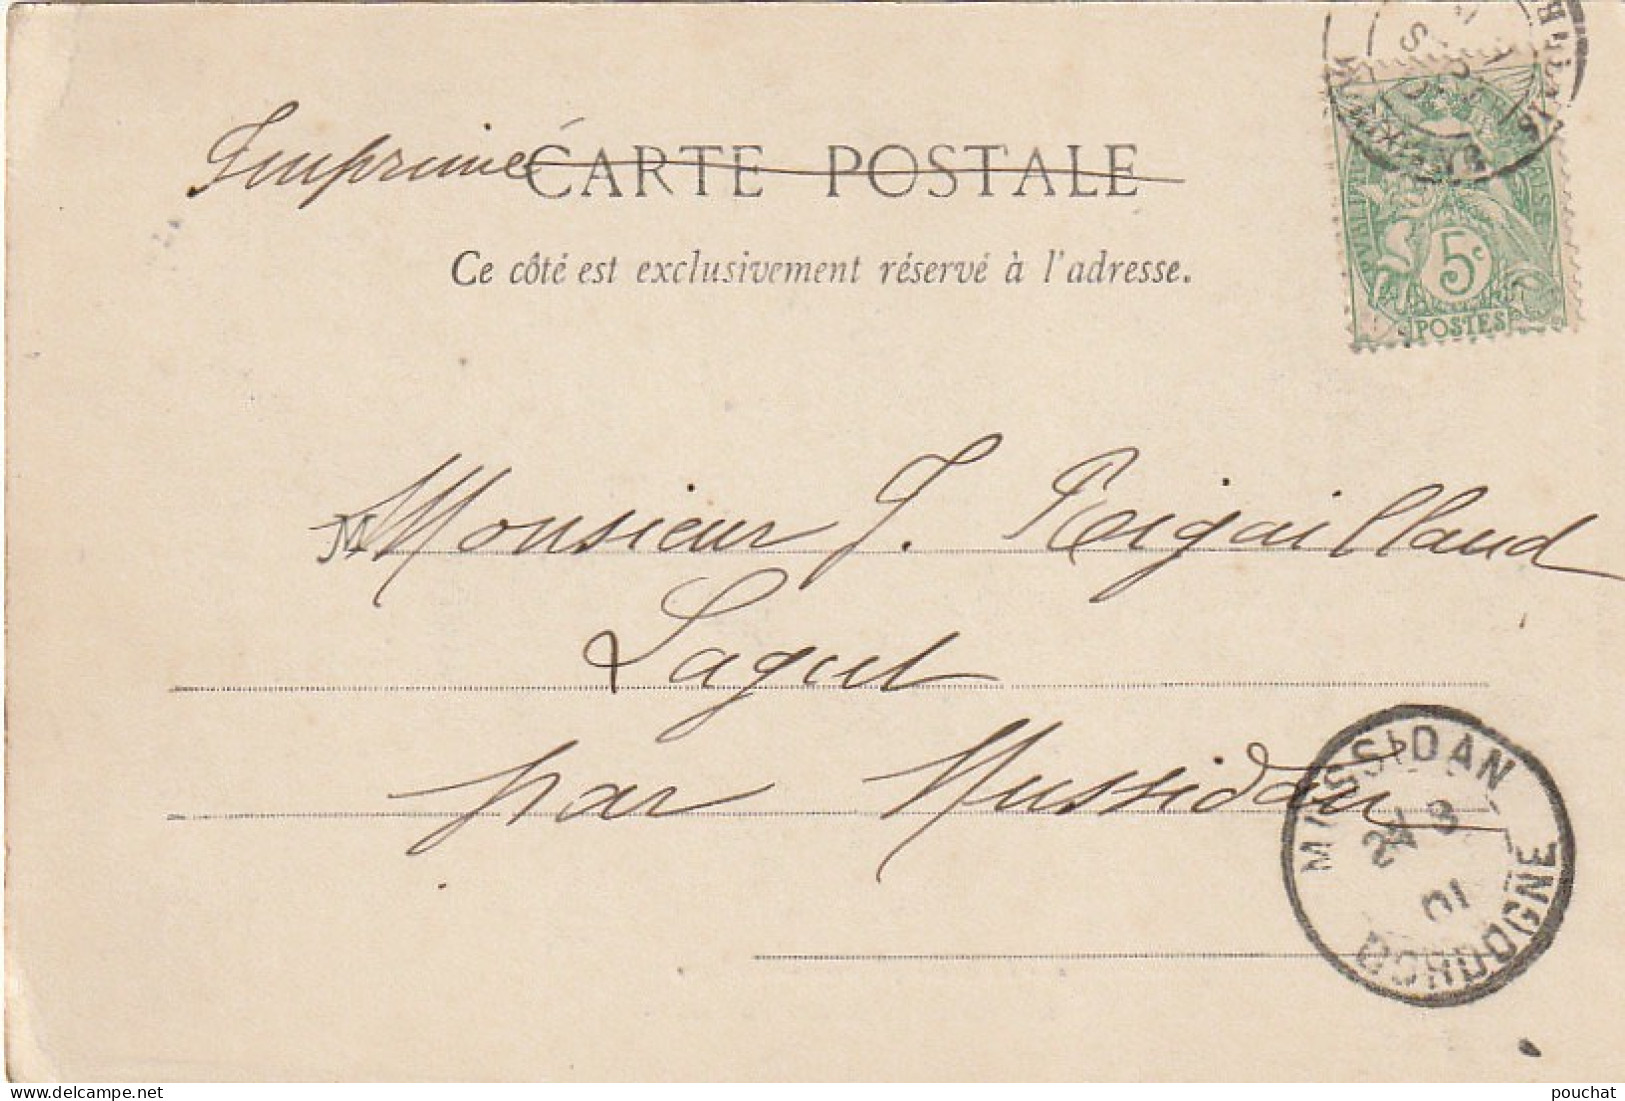 Imprimé CARTE POSTALE
Ce côté est exclusivement réservé à l'adresse.
5c
POSTES
M Monsieur J. Reigaillaud
Lagut
par Mussidan
MUSSIDAN
8
01
DORDOGNE
www.delcampe.net
pouchat